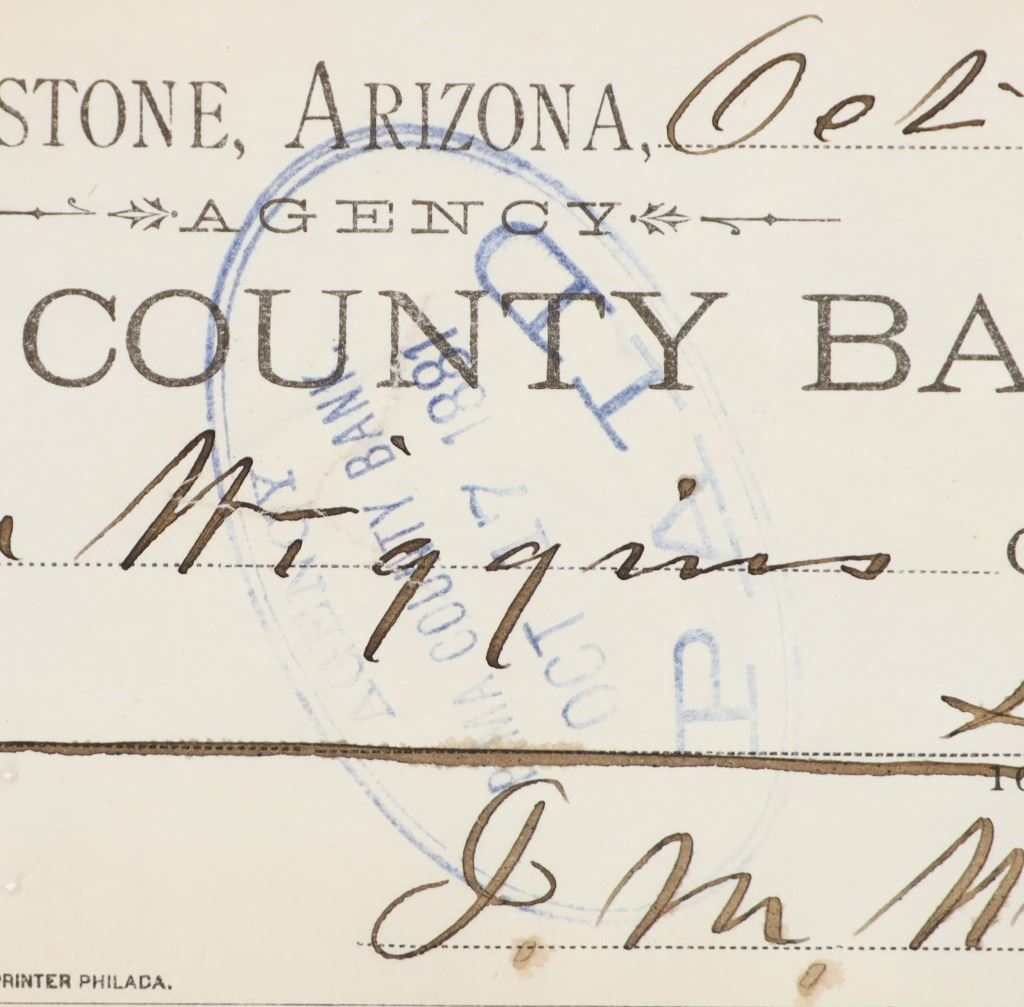 STONE, ARIZONA, Oct
AGENCY
COUNTY BA
Wiggins
J. M.
PRINTER PHILADA.
AGENCY
PIMA COUNTY BANK
OCT 17 1881
PAID